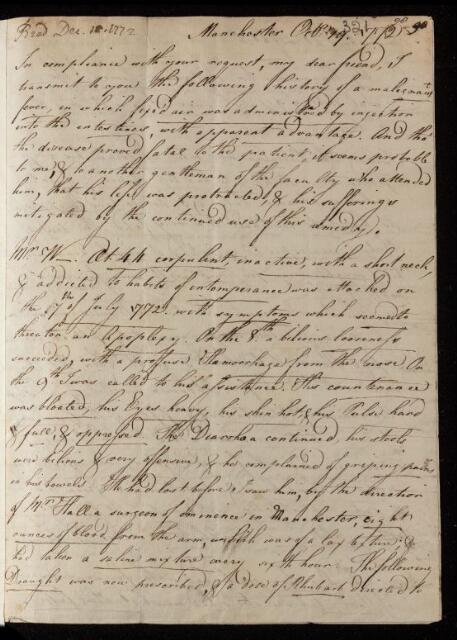 Read Dec. 18. 1772 Manchester Octbr 29. 1772
In compliance with your request, my dear friend, I
transmit to you the following history of a malignant
fever, in which fixed air was administered by injection
into the intestines, with apparent advantage. And tho'
the disease proved fatal to the patient, it seems probable
to me, & to another gentleman of the faculty who attended
him, that his life was protracted, & his sufferings
mitigated by the continued use of this remedy.
Mr. W—. Æt. 44 corpulent, inactive, with a short neck,
& addicted to habits of intemperance was attacked on
the 7th of July 1772. with symptoms which seemed to
threaten an Apoplexy. On the 8th a bilious looseness
succeeded, with a profuse Hæmorrhage from the nose. On
the 9th I was called to his assistance. His countenance
was bloated, his Eyes heavy, his skin hot, & his Pulse hard
& full, & oppressed. The Diarrhœa continued, his stools
were bilious & very offensive, & he complained of griping pains
in his bowels. He had lost before I saw him, by the direction
of Mr. Hall a surgeon of eminence in Manchester, eight
ounces of blood from the arm, which was of a lax texture; &
had taken a saline mixture every sixth hour. The following
Draught was now prescribed, & a dose of Rhubarb directed to